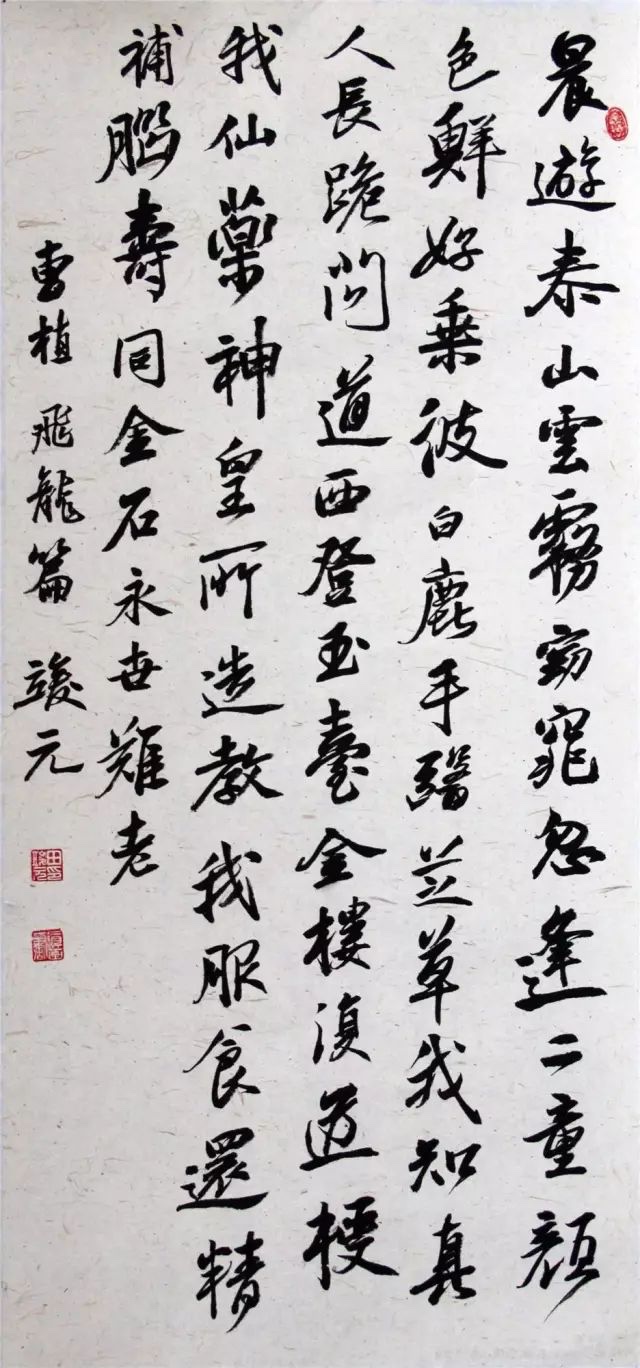 晨遊泰山雲霧窈窕忽逢二童顏
色鮮好乘彼白鹿手翳芝草我知真
人長跪問道西登玉臺金樓復道授
我仙藥神皇所造教我服食還精
補腦壽同金石永世難老
曹植 飛龍篇 竣元